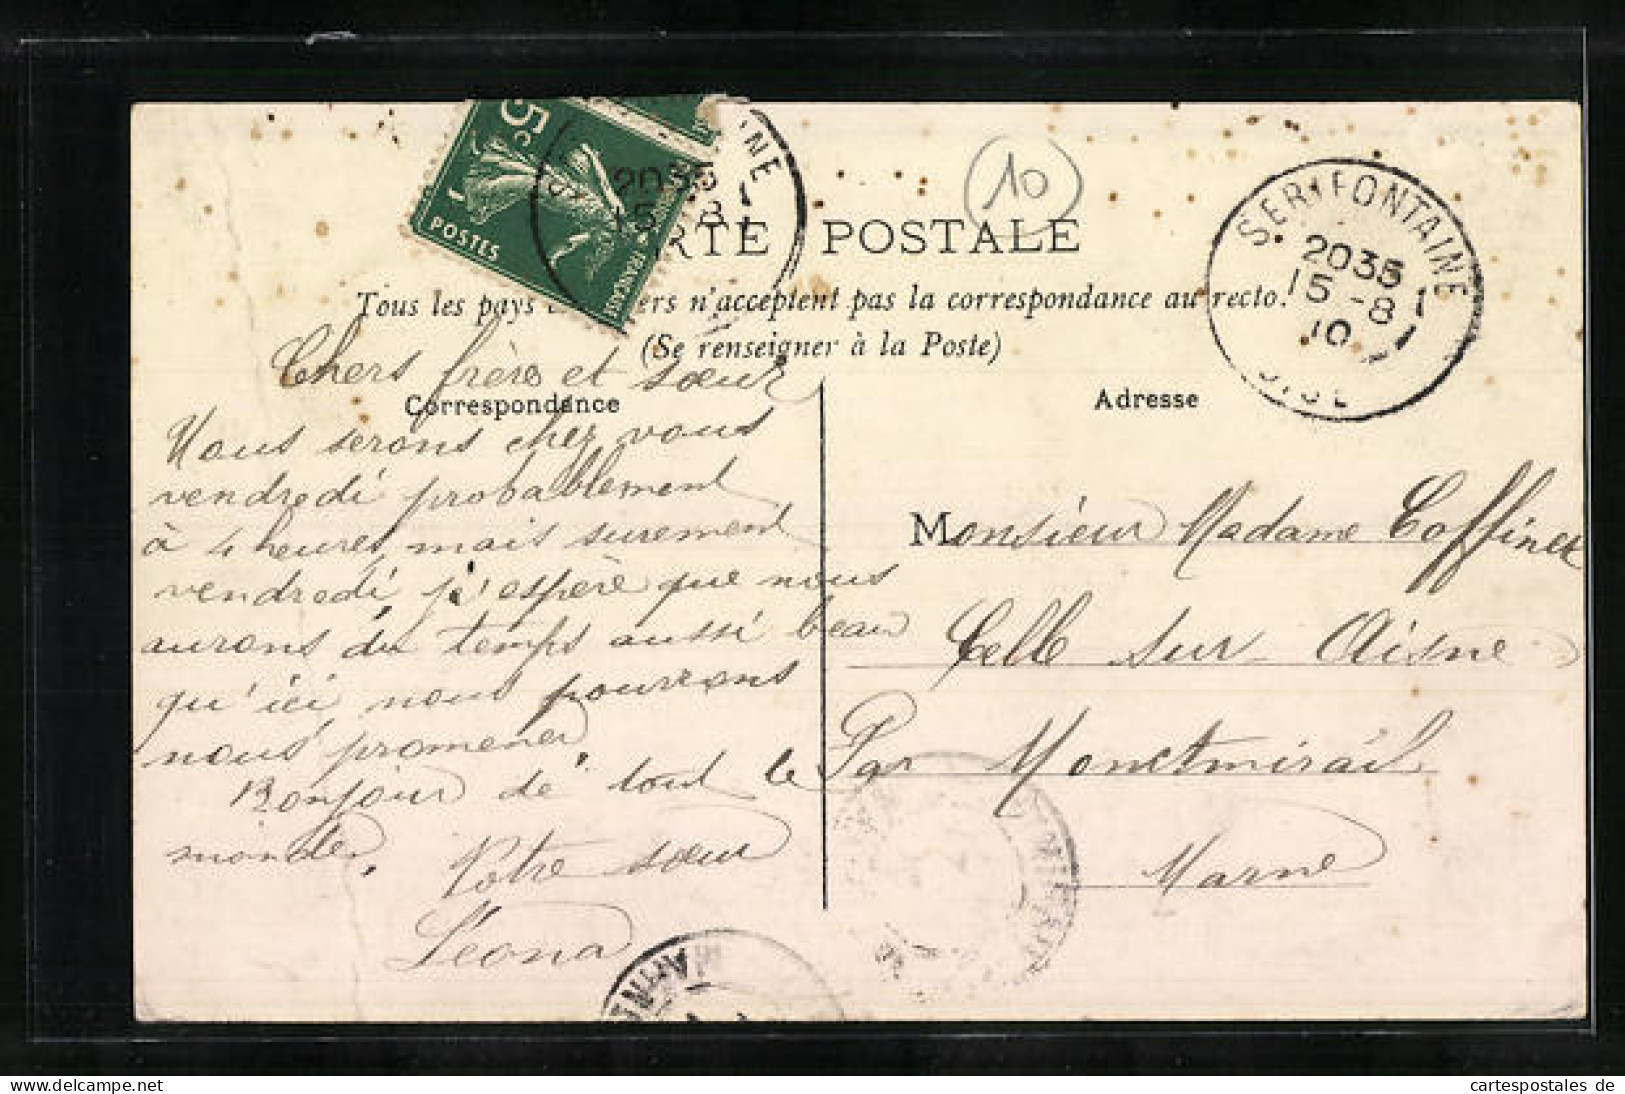 5c
POSTES
FRANÇAISE
INE
2035
15-8
RTE POSTALE
10
SERIFONTAINE
2035
15-8
10
OISE
Tous les pays ers n'acceptent pas la correspondance au recto.
(Se renseigner à la Poste)
Correspondance
Adresse
Chers frère et sœur
Nous serons chez vous
vendredi probablement
à 4 heures, mais surement
vendredi j'espère que nous
aurons du temps aussi beau
qu'ici nous pourrons
nous promener
Bonjour de tout le
monde,
Votre sœur
Léona
Monsieur Madame Coffinet
Celle sur Aisne
Par Monctmirail
Marne
MIRAIL
MARNE
Auktions-Nr. 15244155
cartespostales de